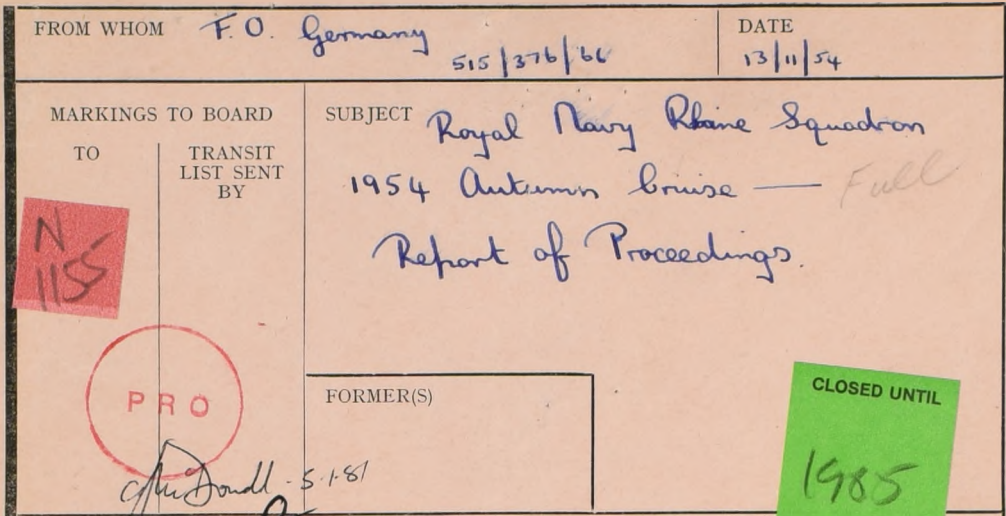 FROM WHOM F. O. Germany
515/376/66
DATE
13/11/54
MARKINGS TO BOARD
TO
TRANSIT
LIST SENT
BY
SUBJECT Royal Navy Rhine Squadron
1954 Autumn Cruise — Full
Report of Proceedings.
N
1155
PRO
FORMER(S)
5.1.81
CLOSED UNTIL
1985